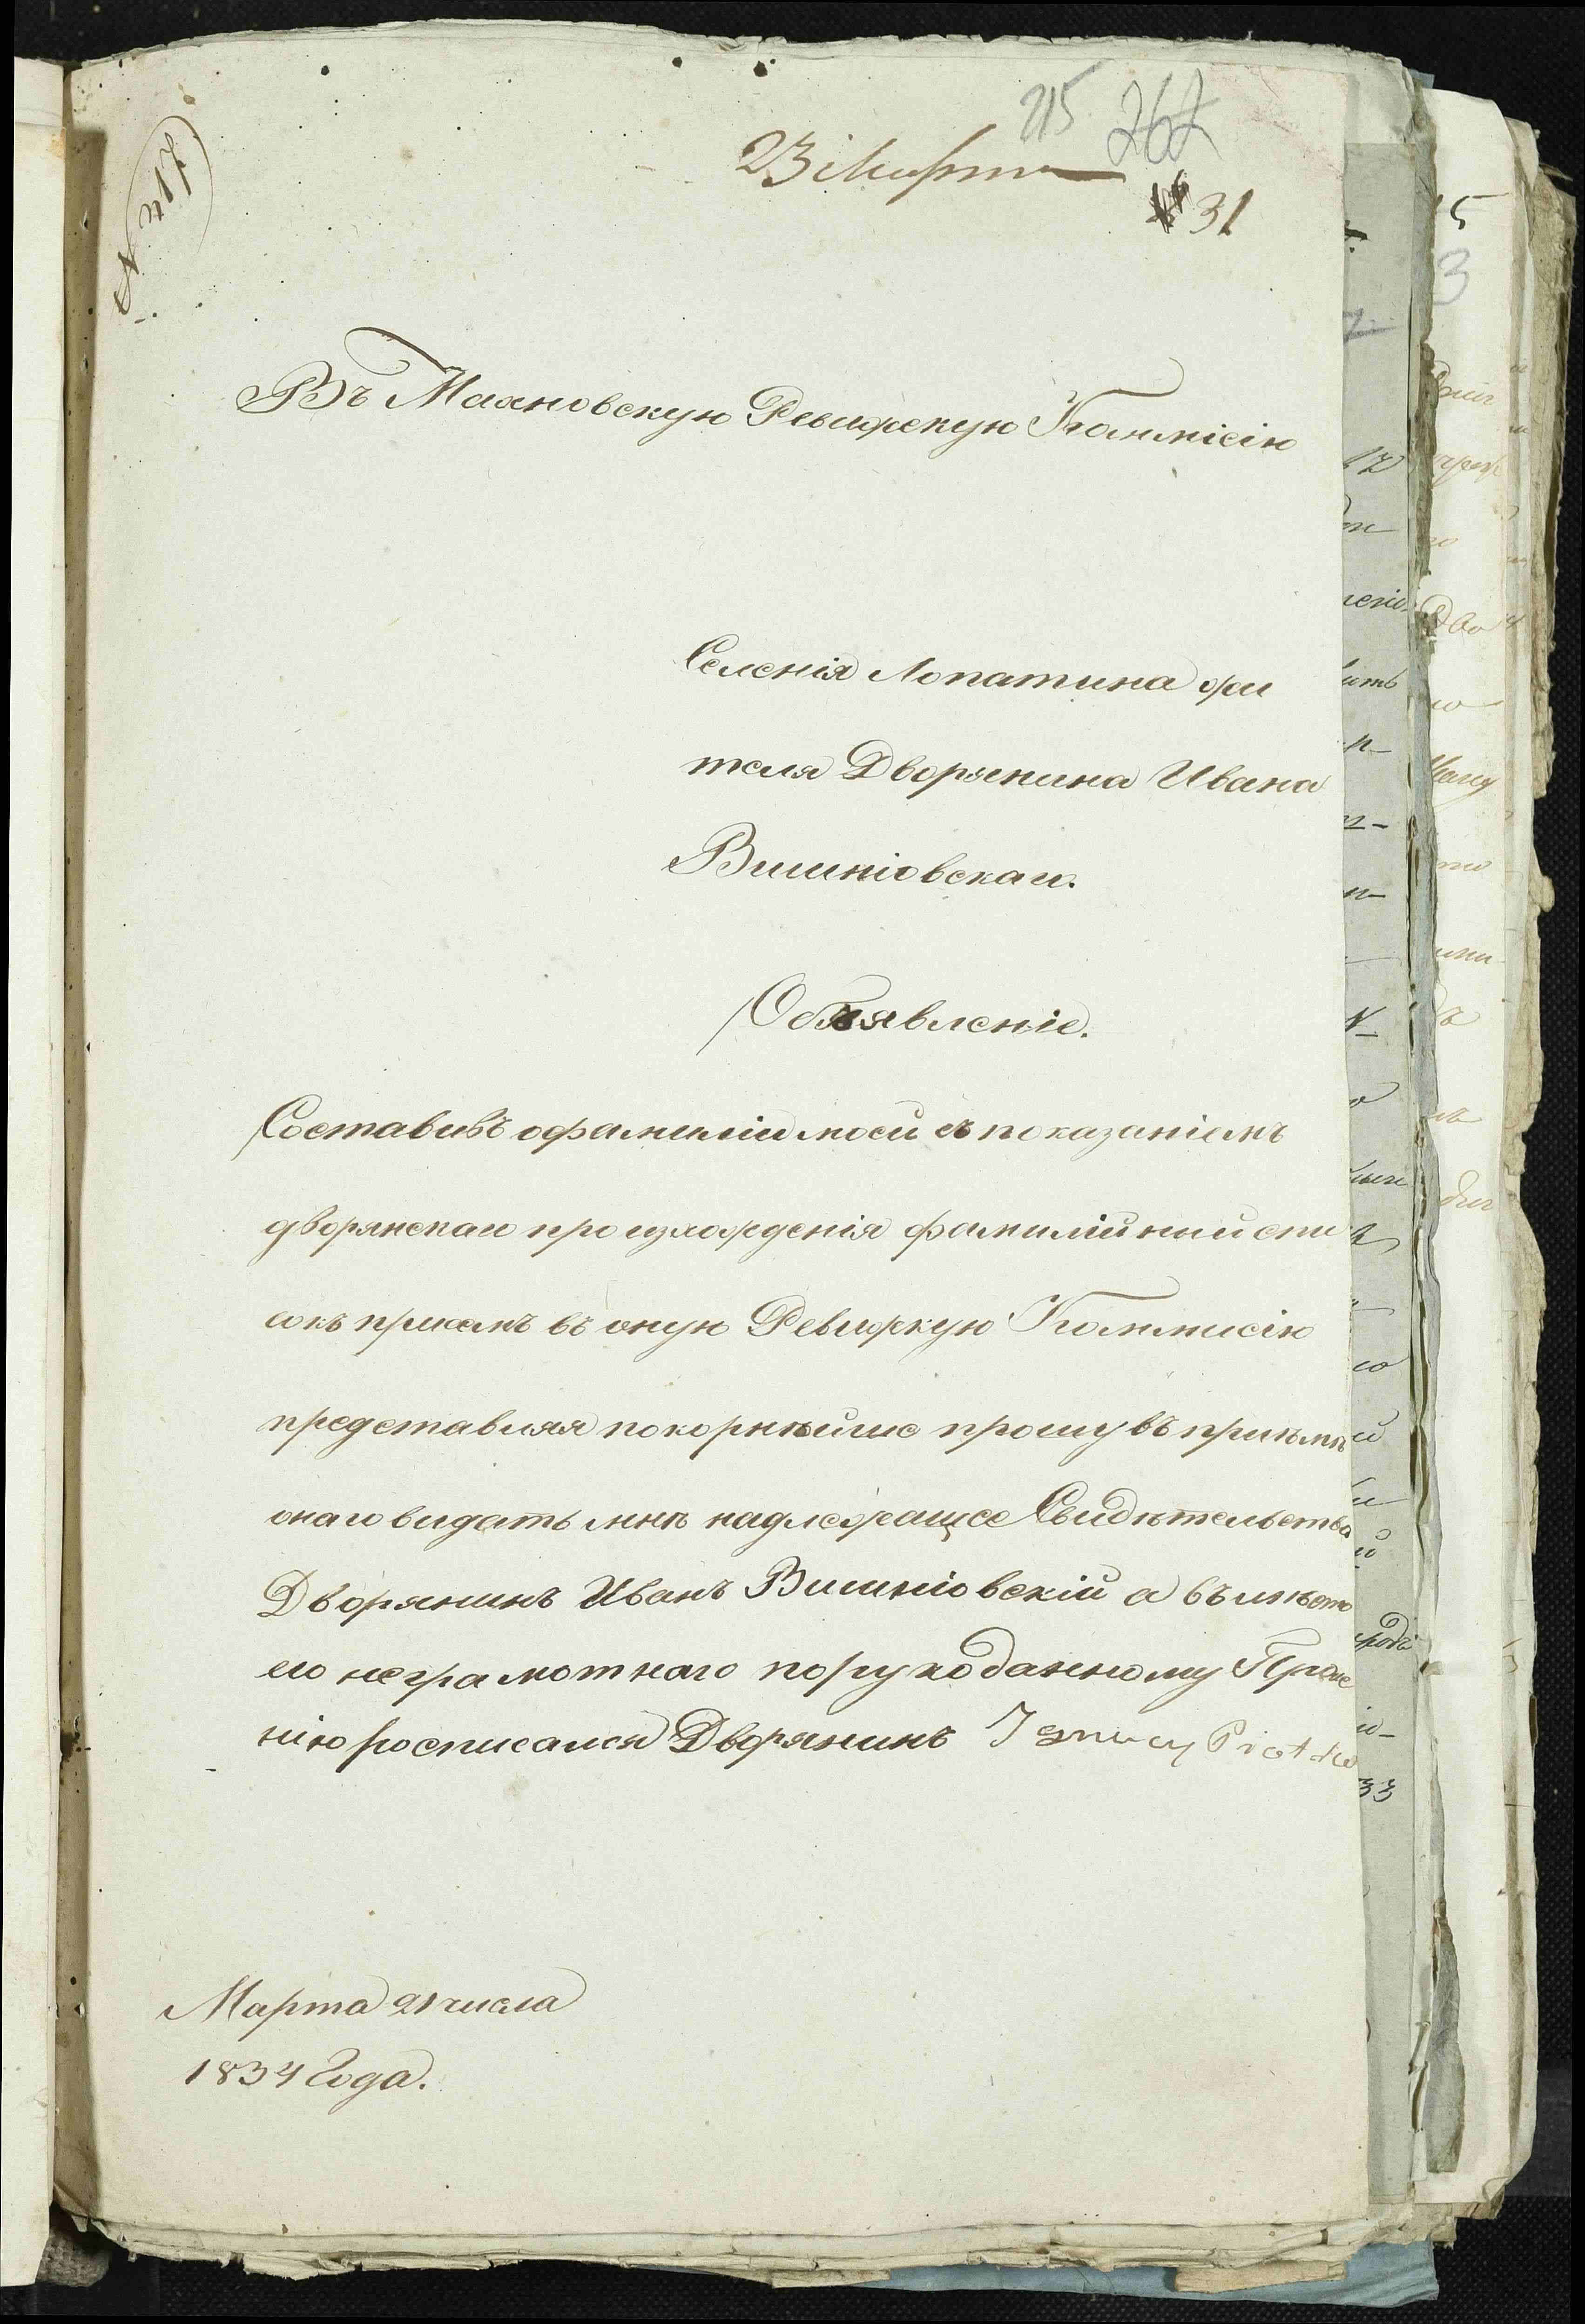 215 262
23 Марта
31
Въ Махновскую Ревизскую Коммісію
Селенія Лопатина жи
теля Дворянина Ивана
Вишніовскаго.
Объявленіе.
Составивъ о фамиліи моей съ показаніемъ
дворянскаго произхожденія фамилійний спи
сокъ присемъ въ оную Ревизкую Коммисію
представляя покорнѣйше прошу въ приъмѣ
онаго видать мнѣ надлежащее Свидѣтельства
Дворянинъ Иванъ Вишніовскій а въмѣсто
его неграмотнаго порукоданному Проше
нію росписался Дворянинъ Ignacy
Марта 21 числа
1834 Года.